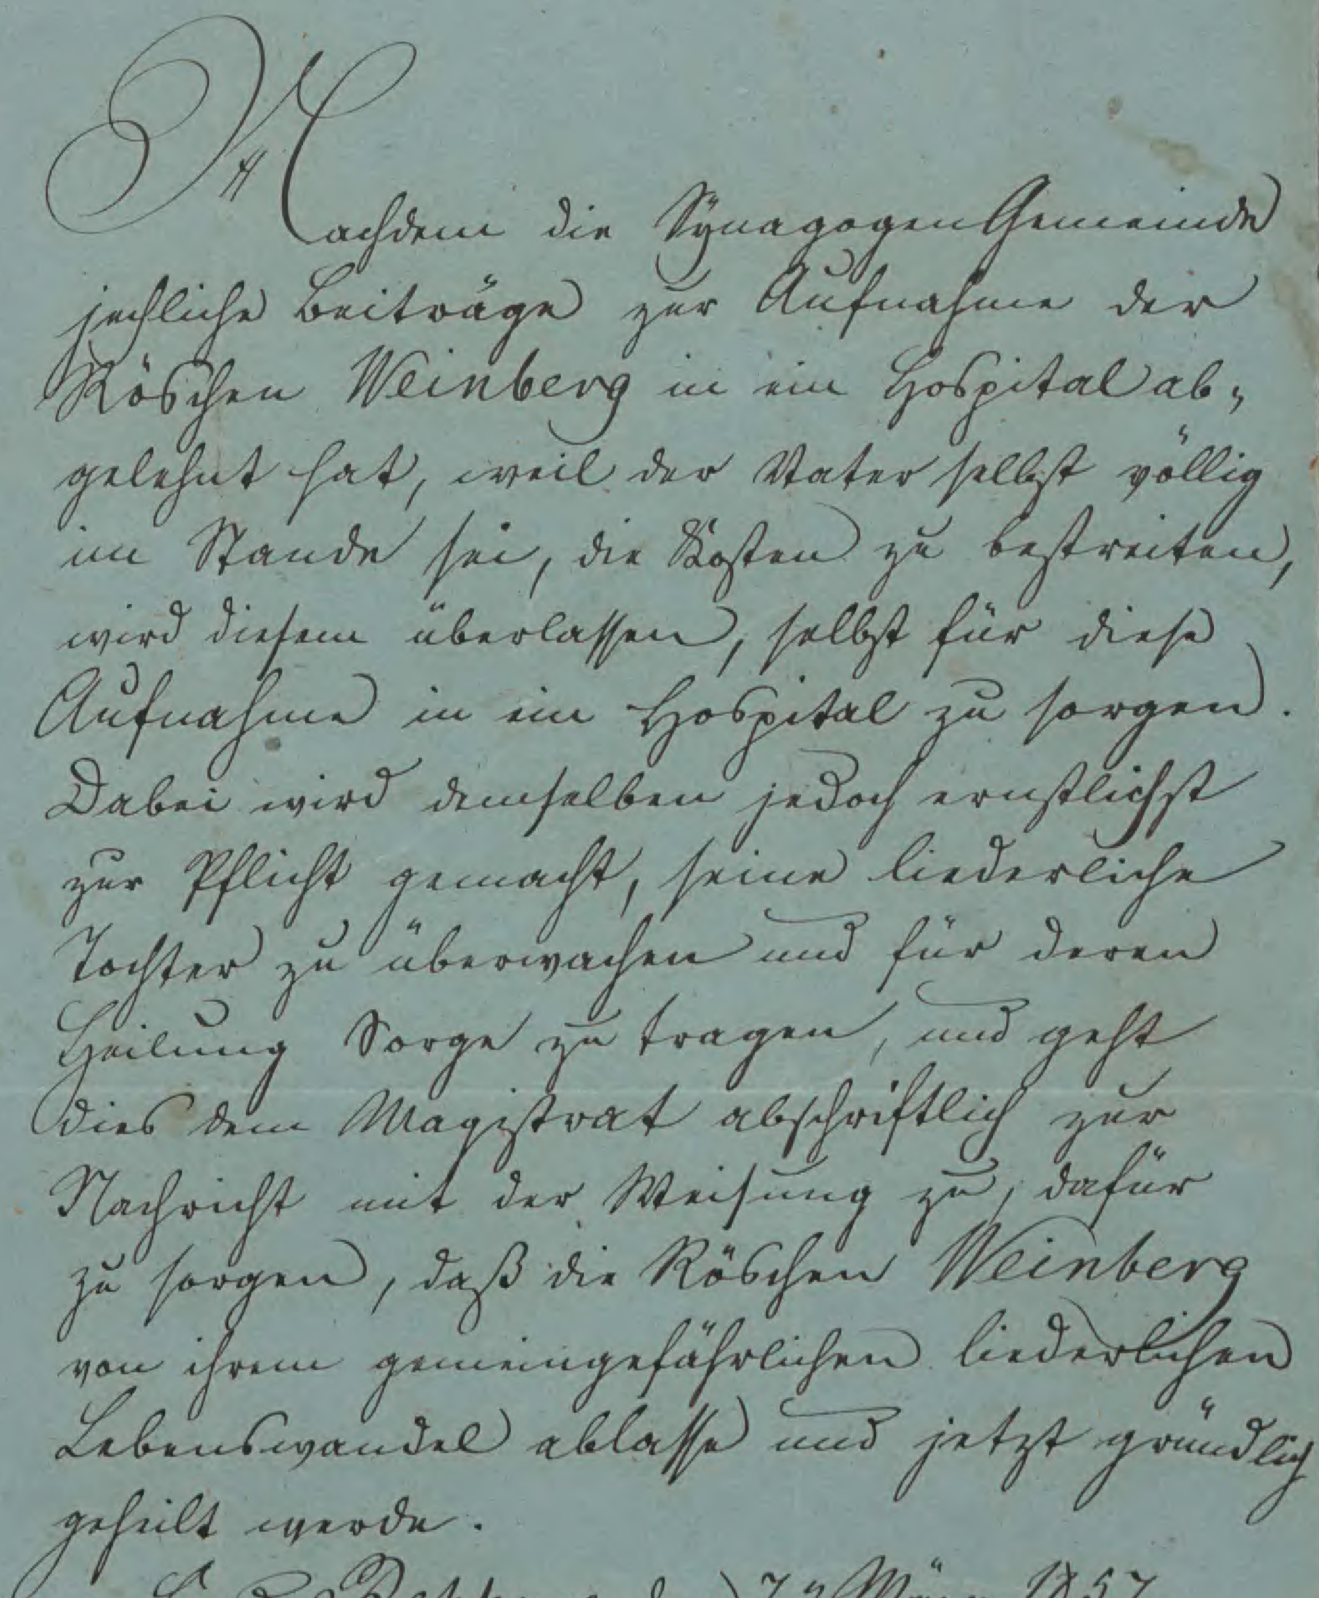 Nachdem die Synagogen Gemeinde
jechliche Beiträge zur Aufnahme der
Röschen Weinberg in ein Hospital ab-
gelehnt hat, weil der Vater selbst völlig
im Stande sei, die Kosten zu bestreiten,
wird diesem überlassen, selbst für diese
Aufnahme in ein Hospital zu sorgen.
Dabei wird demselben jedoch ernstlichst
zur Pflicht gemacht, seine liederliche
Tochter zu überwachen und für deren
Heilung Sorge zu tragen, und geht
dies dem Magistrat abschriftlich zur
Nachricht mit der Weisung zu, dafür
zu sorgen, daß die Röschen Weinberg
von ihrem gemeingefährlichen liederlichen
Lebenswandel ablasse und jetzt gründlich
geheilt werde.
März 1857